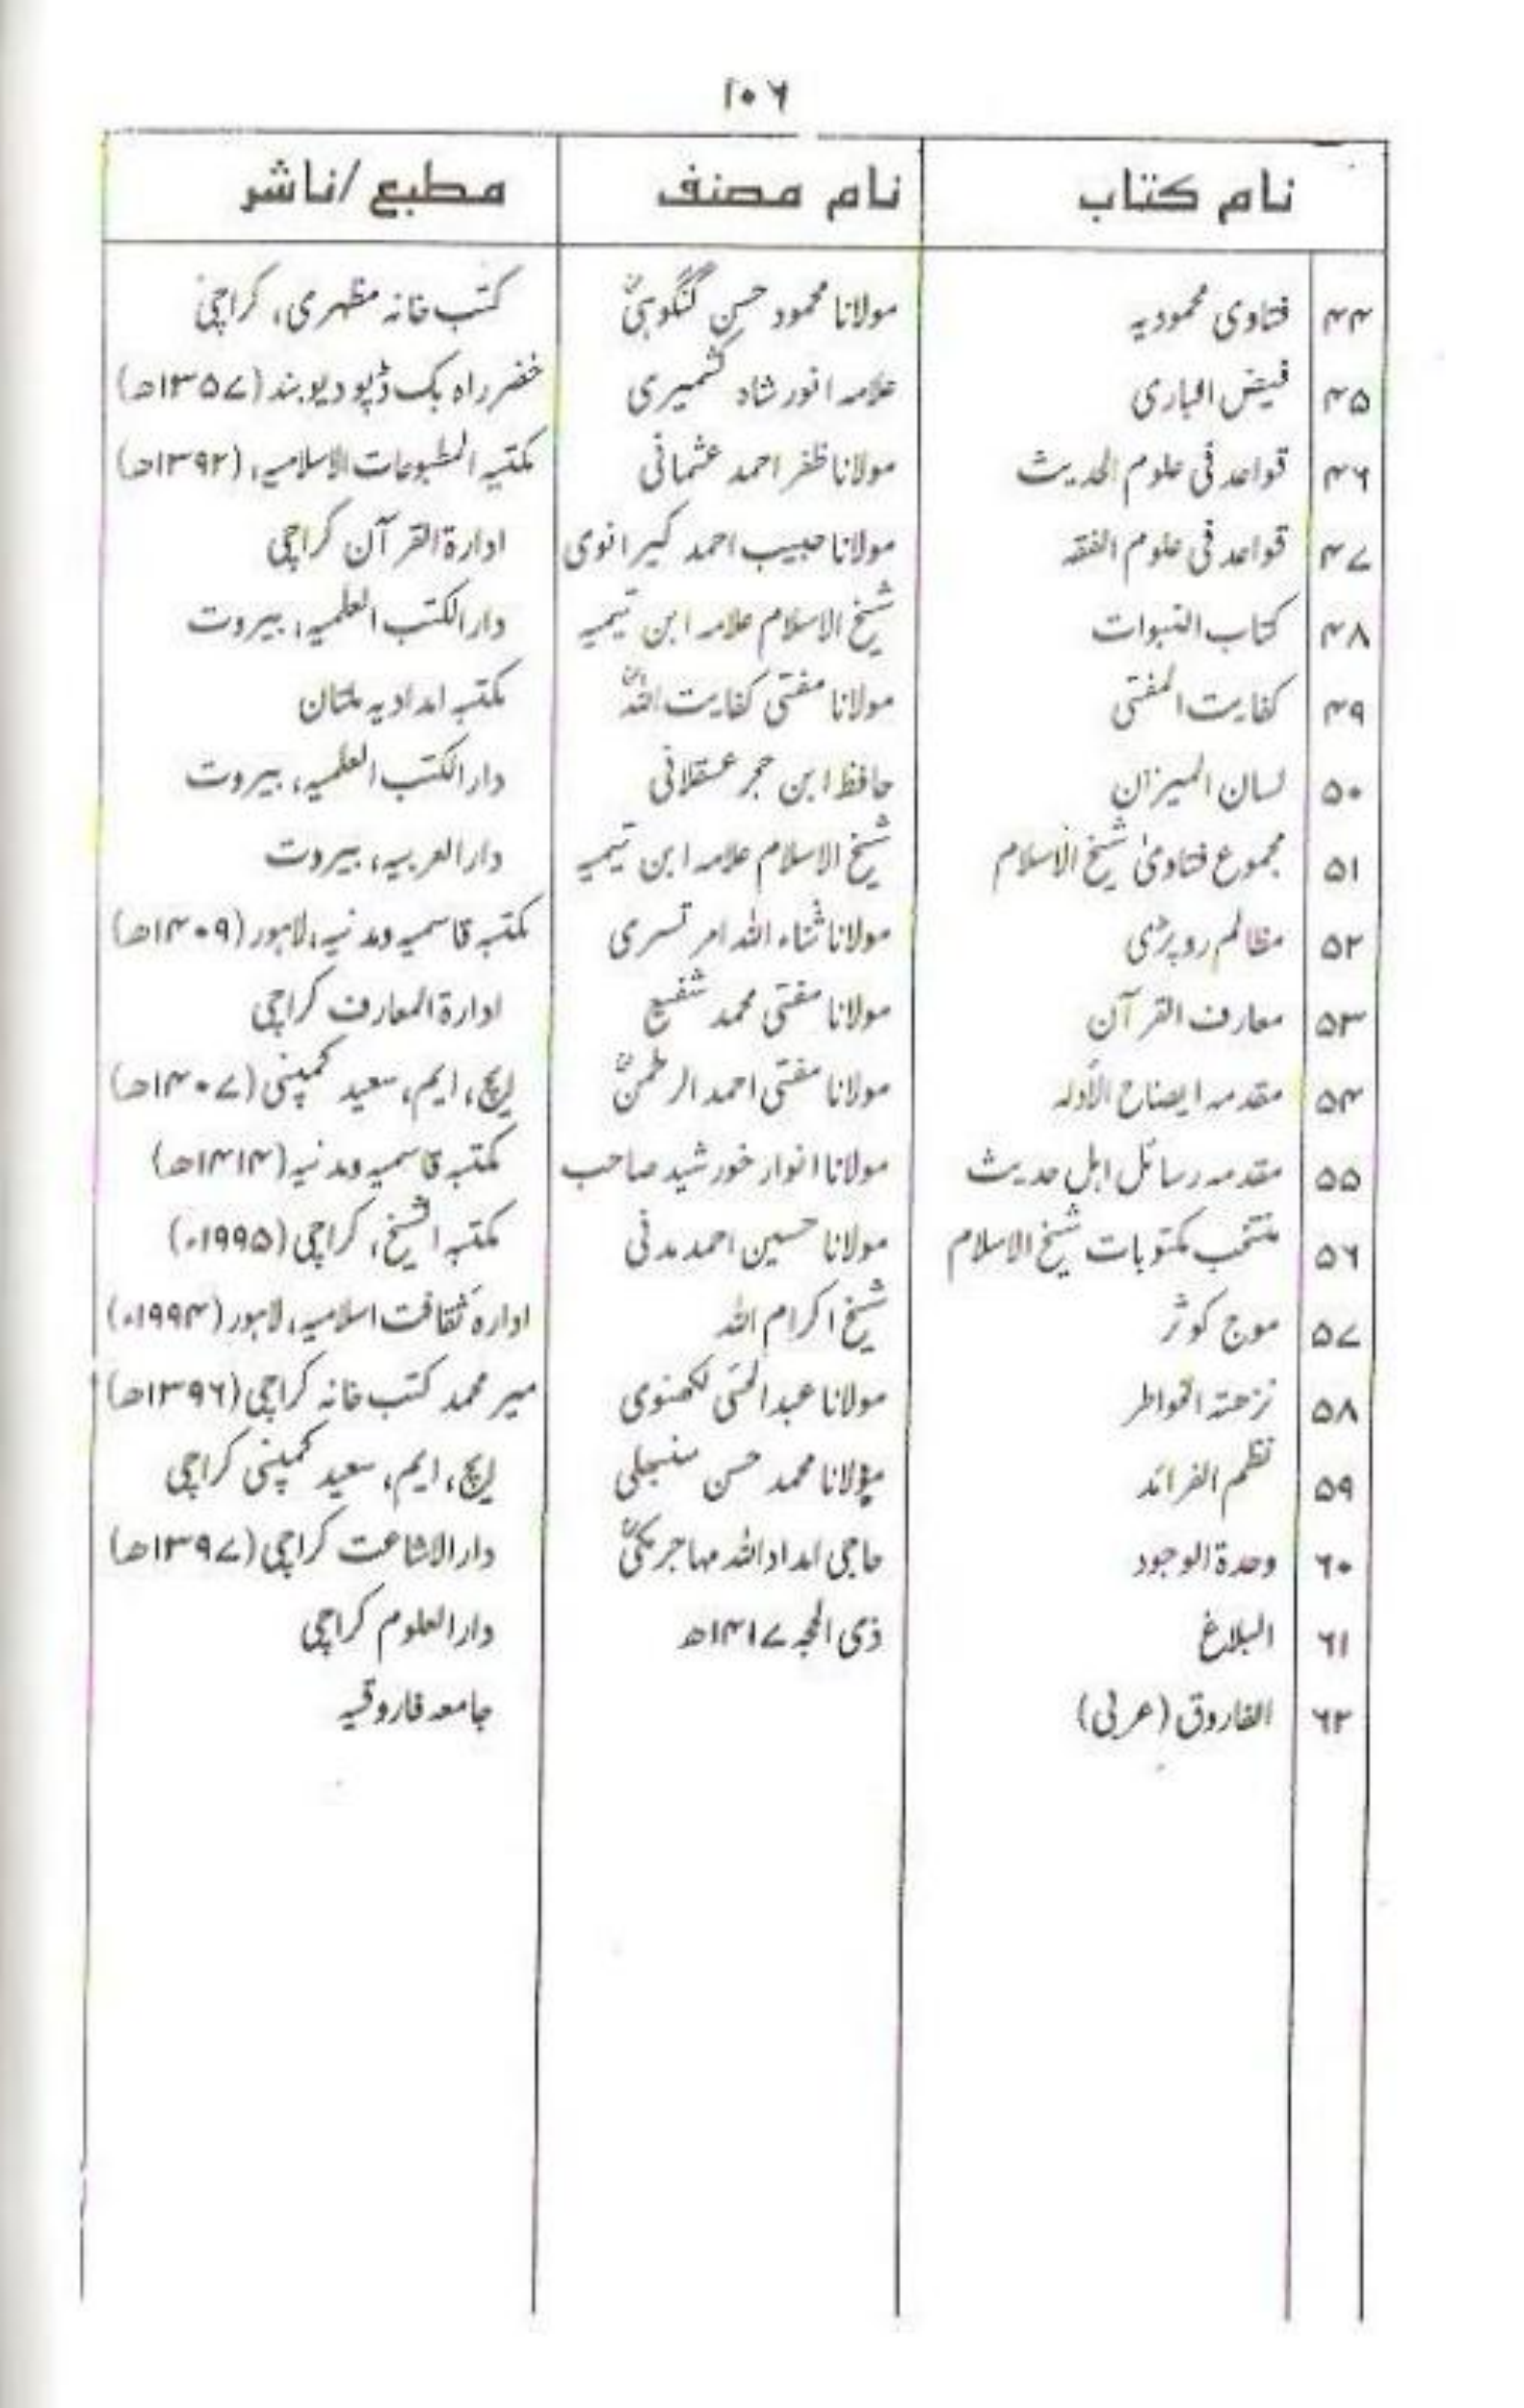 ۱۰۶
نام کتاب نام مصنف مطبع/ناشر
۴۴ فتاوی محمودیہ مولانا محمود حسن گنگوہیؒ کتب خانہ مظہری، کراچی
۴۵ فیض الباری علامہ انور شاہ کشمیری خضر راہ بک ڈپو دیوبند (۱۳۵۷ھ)
۴۶ قواعد فی علوم الحدیث مولانا ظفر احمد عثمانی مکتبہ المطبوعات الاسلامیہ، (۱۳۹۲ھ)
۴۷ قواعد فی علوم الفقہ مولانا حبیب احمد کیرانوی ادارۃ القرآن کراچی
۴۸ کتاب النبوات شیخ الاسلام علامہ ابن تیمیہ دارالکتب العلمیہ، بیروت
۴۹ کفایت المفتی مولانا مفتی کفایت اللہؒ مکتبہ امدادیہ ملتان
۵۰ لسان المیزان حافظ ابن حجر عسقلانی دارالکتب العلمیہ، بیروت
۵۱ مجموع فتاویٰ شیخ الاسلام شیخ الاسلام علامہ ابن تیمیہ دارالعربیہ، بیروت
۵۲ مظالم روپڑی مولانا ثناء اللہ امرتسری مکتبہ قاسمیہ ومدنیہ، لاہور (۱۴۰۹ھ)
۵۳ معارف القرآن مولانا مفتی محمد شفیع ادارۃ المعارف کراچی
۵۴ مقدمہ ایضاح الأدلہ مولانا مفتی احمد الرحمٰنؒ ایچ، ایم، سعید کمپنی (۱۴۰۷ھ)
۵۵ مقدمہ رسائل اہل حدیث مولانا انوار خورشید صاحب مکتبہ قاسمیہ ومدنیہ (۱۴۱۴ھ)
۵۶ منتخب مکتوبات شیخ الاسلام مولانا حسین احمد مدنی مکتبہ الشیخ، کراچی (۱۹۹۵ء)
۵۷ موج کوثر شیخ اکرام اللہ ادارہ ثقافت اسلامیہ، لاہور (۱۹۹۴ء)
۵۸ نزھۃ الخواطر مولانا عبدالحئی لکھنوی میر محمد کتب خانہ کراچی (۱۳۹۶ھ)
۵۹ نظم الفرائد مولانا محمد حسن سنبھلی ایچ، ایم، سعید کمپنی کراچی
۶۰ وحدۃ الوجود حاجی امداد اللہ مہاجر مکیؒ دارالاشاعت کراچی (۱۳۹۷ھ)
۶۱ البلاغ ذی الحجہ ۱۴۱۷ھ دارالعلوم کراچی
۶۲ الفاروق (عربی) جامعہ فاروقیہ